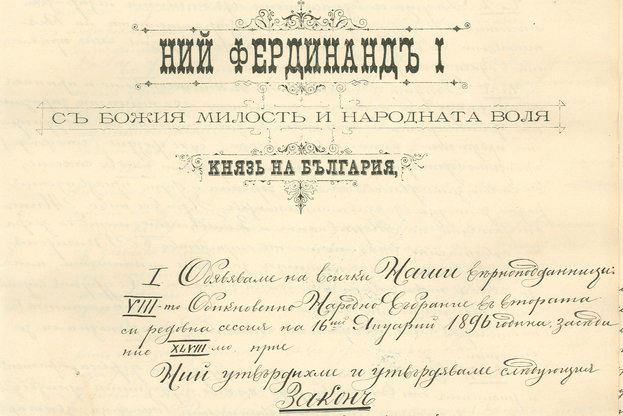 НИЙ ФЕРДИНАНДЪ I
СЪ БОЖИЯ МИЛОСТЬ И НАРОДНАТА ВОЛЯ
КНЯЗЬ НА БЪЛГАРИЯ,
I Обявяваме на всички Наши вѣрноподданници:
VIII-то Обикновенно Народно Събрание въ втората
си редовна сессия на 16ий Януарий 1896 година, заседа
ние XLVIII-мо, прие
Ний утвърдихме и утвърдяваме следующия
Законъ